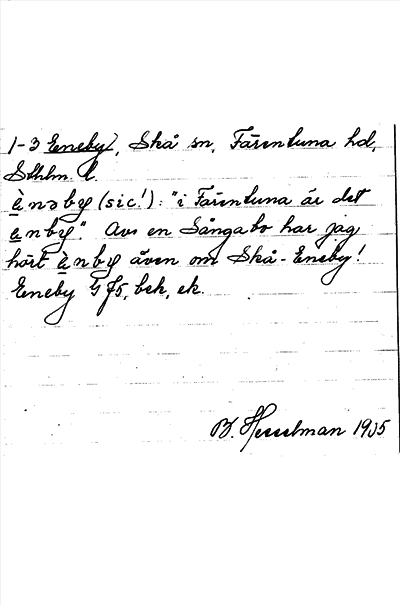 1-3 Eneby, Skå sn, Färentuna hd,
Sthlm. l.
ènəby (sic!): "i Färentuna är det
ènby". Av en Sångabo har jag
hört ènby även om Skå-Eneby!
Eneby G 75, beh, ek.
B. Hesselman 1935